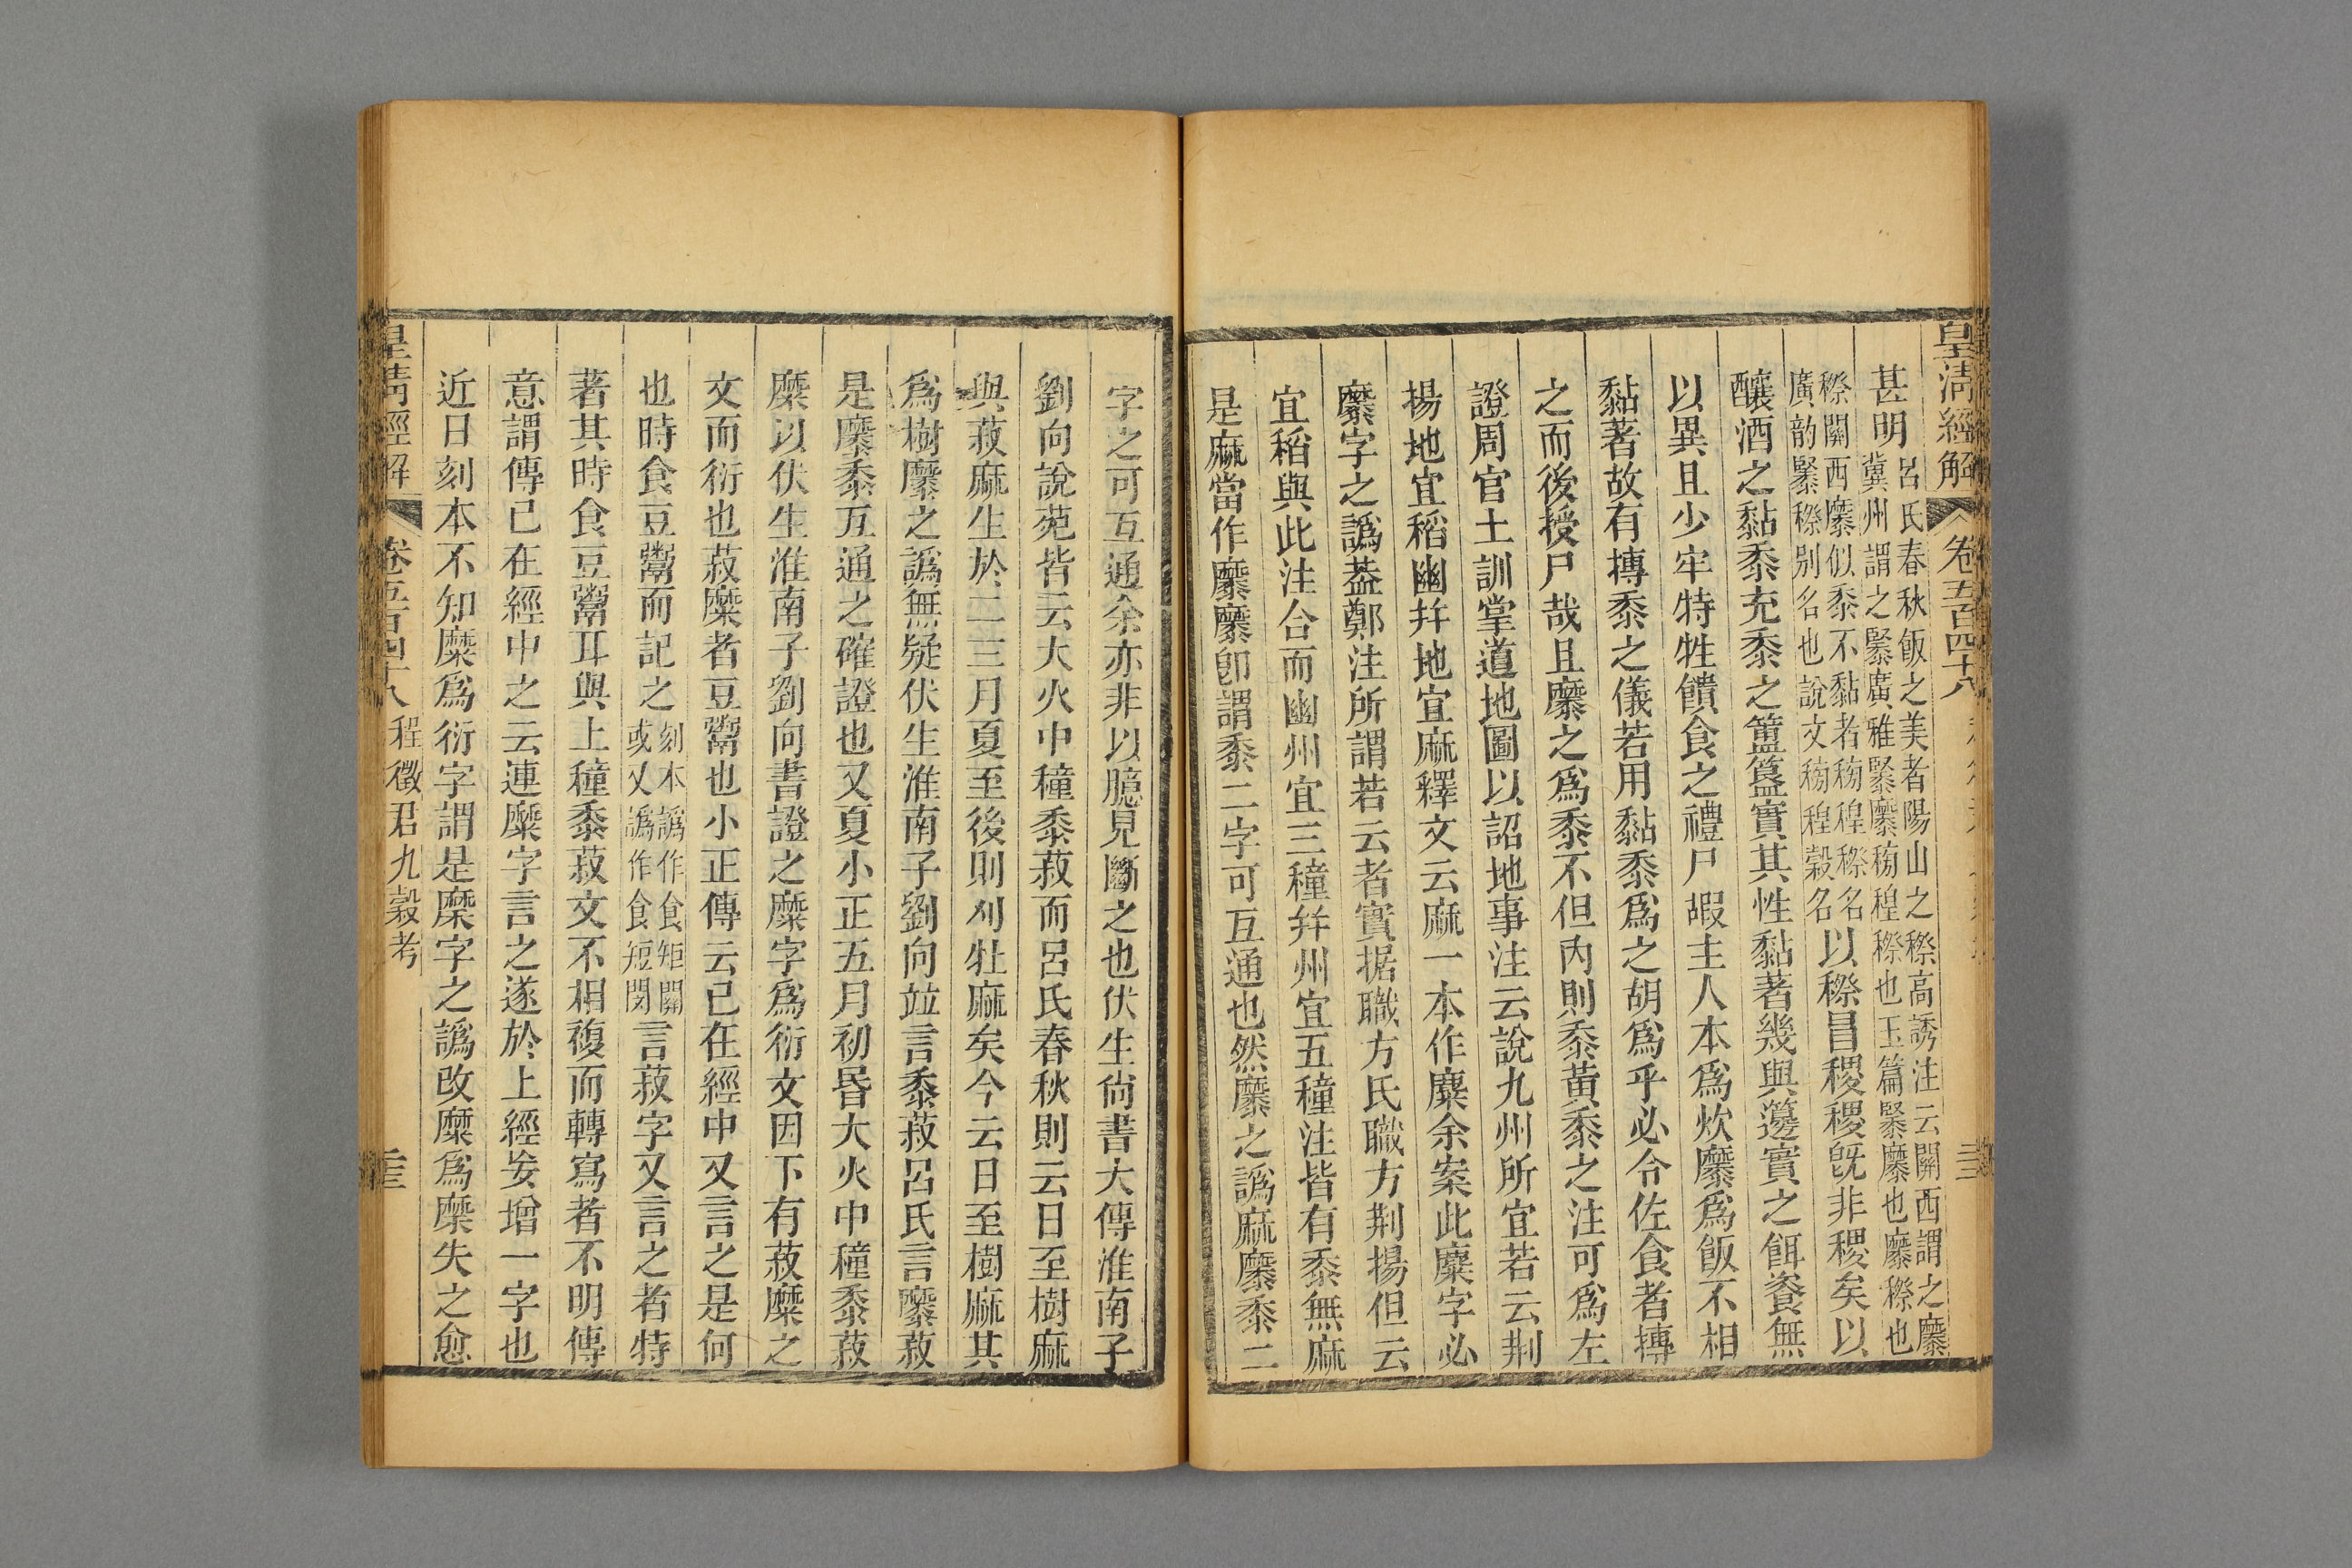 皇清經解
卷五百四十八
甚明呂氏春秋飯之美者陽山之穄高誘注云關西謂之䵚
冀州謂之䅽廣雅䅽䵚䅭䅣穄也玉篇䅽䵚也䵚穄也
穄關西䵚似黍不黏者䅭䅣穄名
廣韵䅽穄别名也說文䅭䅣穀名以穄冒稷稷旣非稷矣以
釀酒之黏黍充黍之簠簋實其性黏著幾與籩實之餌餈無
以異且少牢特牲饋食之禮尸嘏主人本爲炊䵚爲飯不相
黏著故有摶黍之儀若用黏黍爲之胡爲乎必令佐食者摶
之而後授尸哉且䵚之爲黍不但內則黍黃黍之注可爲左
證周官土訓掌道地圖以詔地事注云說九州所宜若云荆
揚地宜稻幽幷地宜麻釋文云麻一本作麋余案此麋字必
䵚字之譌葢鄭注所謂若云者實据職方氏職方荆揚但云
宜稻與此注合而幽州宜三種幷州宜五種注皆有黍無麻
是麻當作䵚䵚卽謂黍二字可互通也然䵚之譌麻䵚黍二
字之可互通余亦非以臆見斷之也伏生尙書大傳淮南子
劉向說苑皆云大火中種黍菽而呂氏春秋則云日至樹麻
與菽麻生於二三月夏至後則刈牡麻矣今云日至樹麻其
爲樹䵚之譌無疑伏生淮南子劉向竝言黍菽呂氏言䵚菽
是䵚黍互通之確證也又夏小正五月初昏大火中種黍菽
糜以伏生淮南子劉向書證之糜字爲衍文因下有菽糜之
文而衍也菽糜者豆鬻也小正傳云已在經中又言之是何
也時食豆鬻而記之刻本譌作食矩關
或又譌作食短閔言菽字又言之者特
著其時食豆鬻耳與上種黍菽文不相複而轉寫者不明傳
意謂傳已在經中之云連糜字言之遂於上經妄增一字也
近日刻本不知糜爲衍字謂是縻字之譌改糜爲縻失之愈
皇清經解
卷五百四十八
程徵君九穀考
三